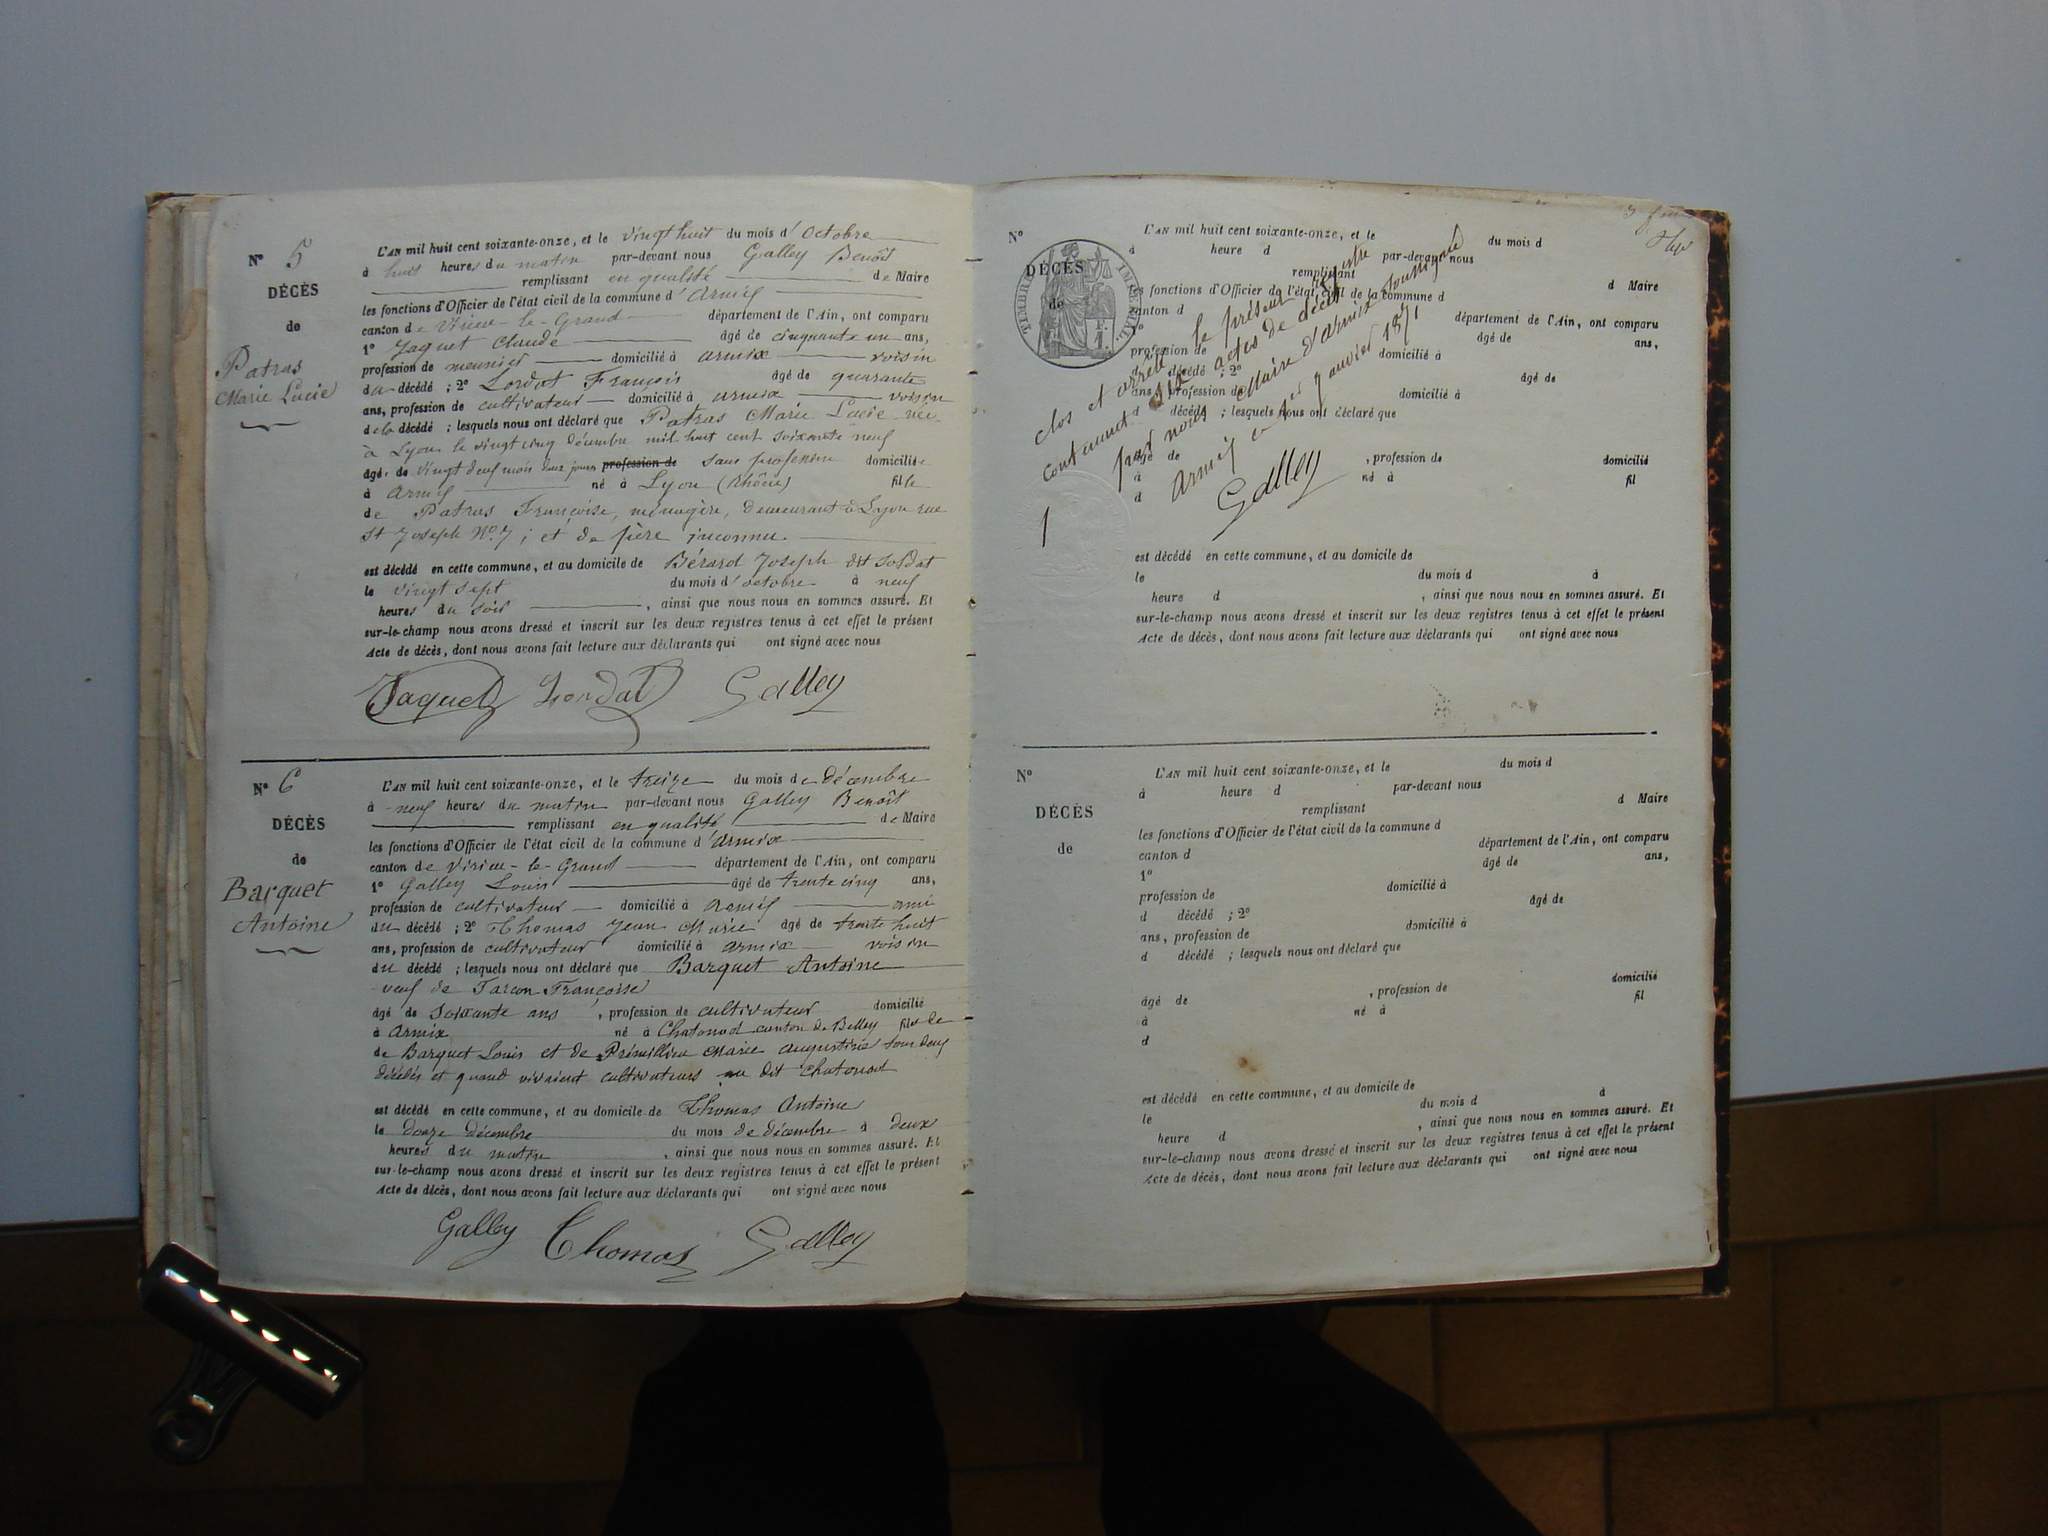 N° 5
DÉCÈS
de
Patras
Marie Lucie
L'AN mil huit cent soixante-onze, et le vingt huit du mois d'Octobre
à huit heures du matin par-devant nous Galley Benoît
remplissant en qualité de Maire
les fonctions d'Officier de l'état civil de la commune d'Armix
canton de Virieu-le-Grand département de l'Ain, ont comparu
1° Jaquet Claude âgé de cinquante un ans,
profession de meunier domicilié à armix voisin
du décédé ; 2° Lordat François âgé de quarante
ans, profession de cultivateur domicilié à armix voisin
de la décédé ; lesquels nous ont déclaré que Patras Marie Lucie née
à Lyon le vingt cinq décembre mil huit cent soixante neuf
âgé de vingt deux mois deux jours profession de sans profession domicilié
à Armix né à Lyon (Rhône) fille
de Patras Françoise, ménagère, demeurant à Lyon rue
St Joseph N° 7 ; et de père inconnu
est décédé en cette commune, et au domicile de Bérard Joseph dit soldat
le vingt sept du mois d'octobre à neuf
heures du soir , ainsi que nous nous en sommes assuré. Et
sur-le-champ nous avons dressé et inscrit sur les deux registres tenus à cet effet le présent
Acte de décès, dont nous avons fait lecture aux déclarants qui ont signé avec nous
Jaquet Lordat Galley
N° 6
DÉCÈS
de
Barquet
Antoine
L'AN mil huit cent soixante-onze, et le treize du mois de décembre
à neuf heures du matin par-devant nous Galley Benoît
remplissant en qualité de Maire
les fonctions d'Officier de l'état civil de la commune d'armix
canton de Virieu-le-Grand département de l'Ain, ont comparu
1° Galley Louis âgé de trente cinq ans,
profession de cultivateur domicilié à armix ami
du décédé ; 2° Thomas Jean Marie âgé de trente huit
ans, profession de cultivateur domicilié à armix voisin
du décédé ; lesquels nous ont déclaré que Barquet Antoine
veuf de Françoise
âgé de soixante ans , profession de cultivateur domicilié
à Armix né à Chatonod canton de Belley fils de
de Barquet Louis et de Prémillieu Marie augustine tous deux
décédés et quand vivaient cultivateurs au dit chatonod
est décédé en cette commune, et au domicile de Thomas Antoine
le douze décembre du mois de décembre à deux
heures du matin , ainsi que nous nous en sommes assuré. Et
sur-le-champ nous avons dressé et inscrit sur les deux registres tenus à cet effet le présent
Acte de décès, dont nous avons fait lecture aux déclarants qui ont signé avec nous
Galley Thomas Galley
N°
DÉCÈS
de
TIMBRE IMPÉRIAL
L'AN mil huit cent soixante-onze, et le du mois d
à heure d par-devant nous
remplissant d Maire
les fonctions d'Officier de l'état civil de la commune d
canton d département de l'Ain, ont comparu
1° âgé de ans,
profession de domicilié à
d décédé ; 2° âgé de
ans, profession de domicilié à
d décédé ; lesquels nous ont déclaré que
âgé de , profession de domicilié
à né à fil
d
clos et arrêté le présent registre
contenant six actes de décès
par nous Maire d'armix soussigné
Armix ce 1er janvier 1871
Galley
est décédé en cette commune, et au domicile de
le du mois d à
heure d , ainsi que nous nous en sommes assuré. Et
sur-le-champ nous avons dressé et inscrit sur les deux registres tenus à cet effet le présent
Acte de décès, dont nous avons fait lecture aux déclarants qui ont signé avec nous
N°
DÉCÈS
de
L'AN mil huit cent soixante-onze, et le du mois d
à heure d par-devant nous
remplissant d Maire
les fonctions d'Officier de l'état civil de la commune d
canton d département de l'Ain, ont comparu
1° âgé de ans,
profession de domicilié à
d décédé ; 2° âgé de
ans, profession de domicilié à
d décédé ; lesquels nous ont déclaré que
âgé de , profession de domicilié
à né à fil
d
est décédé en cette commune, et au domicile de
le du mois d à
heure d , ainsi que nous nous en sommes assuré. Et
sur-le-champ nous avons dressé et inscrit sur les deux registres tenus à cet effet le présent
Acte de décès, dont nous avons fait lecture aux déclarants qui ont signé avec nous